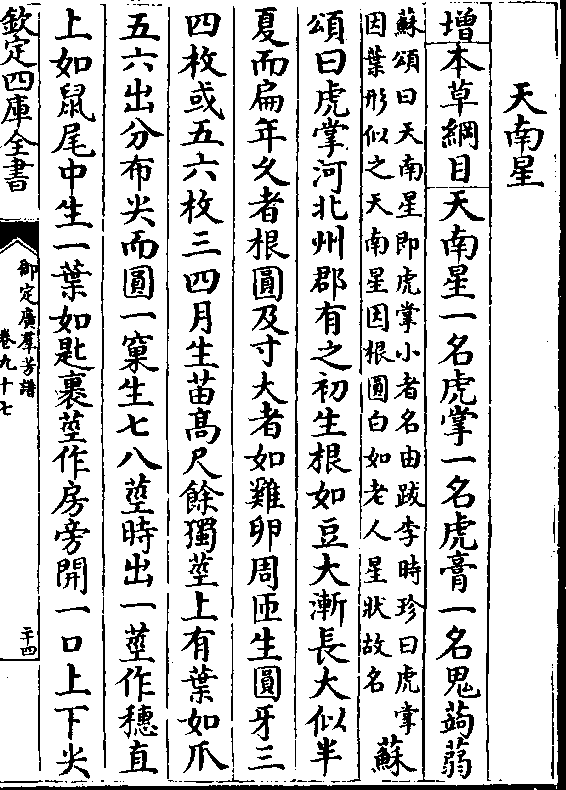 天南星
增本草綱目天南星一名虎掌一名虎膏一名鬼蒟蒻
蘇頌曰天南星即虎掌小者名由跋李時珍曰虎掌
因葉形似之天南星因根圓白如老人星狀故名
蘇
頌曰虎掌河北州郡有之初生根如豆大漸長大似半
夏而扁年久者根圓及寸大者如雞卵周匝生圓牙三
四枚或五六枚三四月生苗髙尺餘獨莖上有葉如爪
五六出分布尖而圓一窠生七八莖時出一莖作穗直
上如鼠尾中生一葉如匙裹莖作房旁開一口上下尖
欽定四庫全書
御定廣羣芳譜
卷九十七
二十四